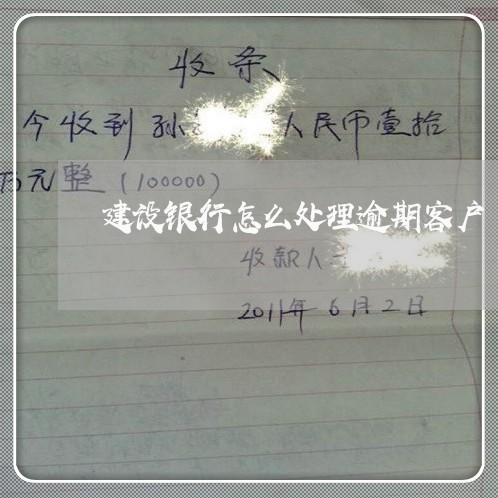 收条
今收到孙 人民币壹拾
万元整(100000)
建设银行怎么处理逾期客户
收款人
2011年6月2日